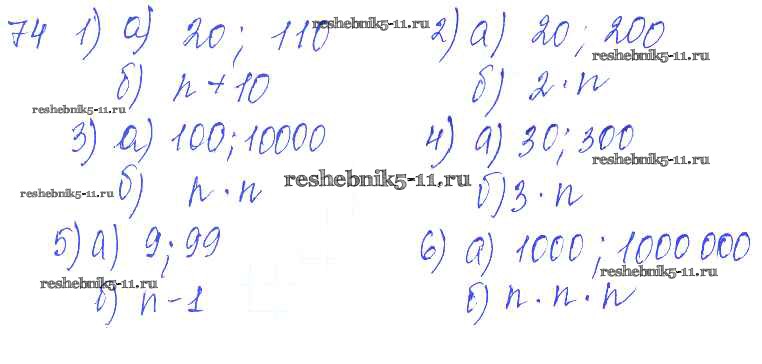 74 1) а) 20; 110
б) n + 10
2) а) 20; 200
б) 2 · n
3) а) 100; 10000
б) n · n
4) а) 30; 300
б) 3 · n
5) а) 9; 99
б) n - 1
6) а) 1000; 1000 000
б) n · n · n
reshebnik5-11.ru
reshebnik5-11.ru
reshebnik5-11.ru
reshebnik5-11.ru
reshebnik5-11.ru
reshebnik5-11.ru
reshebnik5-11.ru
reshebnik5-11.ru